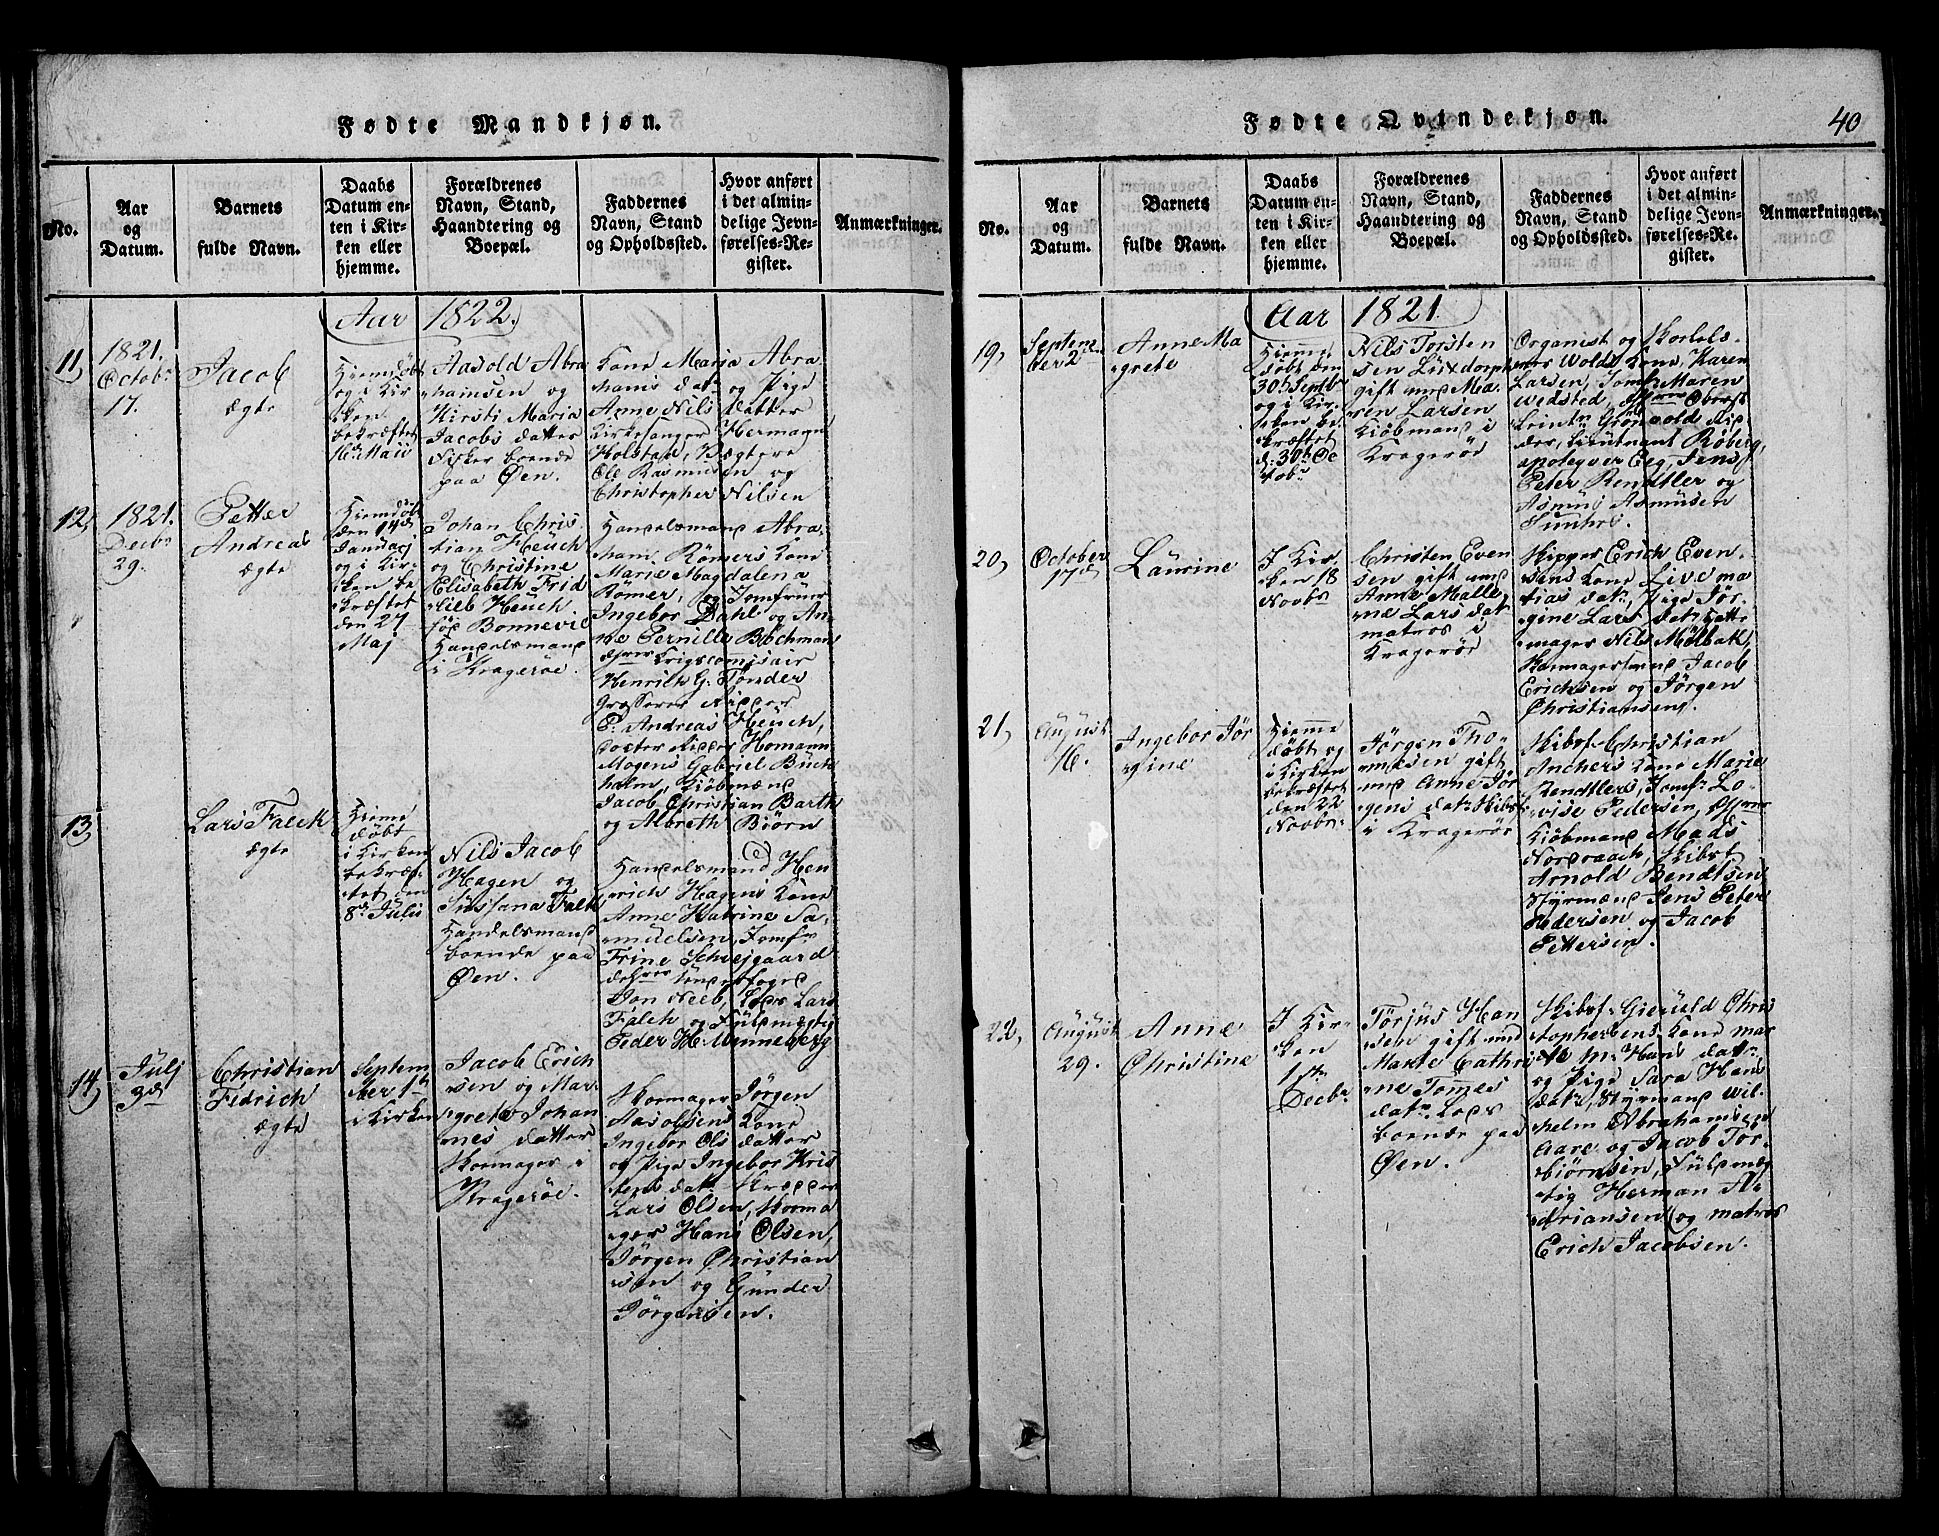 Fødte Mandkjøn.
No.
Aar
og
Datum.
Barnets
fulde Navn.
Daabs
Datum en-
ten i Kir-
ken eller
hjemme.
Forældrenes
Navn, Stand,
Haandtering og
Boepæl.
Faddernes
Navn, Stand
og Opholdssted.
Hvor anført
i det almin-
delige Jevn-
førelses-Re-
gister.
Anmærkninger.
Aar 1822.
11,
1821.
Octobr
17.
Jacob
ægte
Hiemdøbt
og i Kir-
ken
bekræftet
16de Maii
Aasold Abra
hamsen og
Kirsti Maria
Jacobs datter
Fisker boende
paa Øen.
Kone Maria Abra
hams datr og Pige
Anne Nils datter
Kirkesanger Hermann
Holstad,
Ole Rasmusen og
Christopher Nilsen
12,
1821.
Decbr
29.
Petter
Andreas
ægte
Hiemdøbt
den 14de
Januarj
og i Kir-
ken be
kræftet
den 27
Maj
Johan Chris
tian Heuch
og Christine
Elisabeth Frid
lieb Heuch
fød Bonnevie
Handelsmand
i Kragerøe.
Handelsmand Abra-
ham Römers Kone
Marie Magdalena
Römer, og Jomfruer
Ingebor Dahl og An-
ne Pernille Bochman
Krigscomisair
Henrich G. Tonder
Grosserer
P. Andreas Heuch,
Homann
Mogens Gabriel Buch
holm, Kiöbmænd
Jacob Christian Barth
og Albreth Biørn
13,
Lars Falck
ægte
Hieme
døbt
i Kirken
bekræf-
tet den
8de Julii
Nils Jacob
Hagen og
Sussana Falck
Handelsmand
boende paa
Øen.
Handelsmand Hen
rich Hagens Kone
Anne Katrine Sa-
muelsen, Jomfr
Trine Schwejgaard
Jon Neeb, Lods Lars
Falck og Fuldmægtig
Peder H. Winneberg
14,
Julj
3de
Christian
Fedrich
ægte
Septem
ber 1te
Kirken
Jacob Erich
sen og Mar-
grete Johan
nes datter
Skomager i
Kragerøe.
Skomager Jörgen
Aasolsens Kone
Ingebor Ols datter
og Pige Ingebor Kris
tens dat.
Lars Olsen, Skoma
ger Hans Olsen,
Jörgen Christian
sen og Gunder
Jörgensen.
Fødte Qvindekjøn.
40
No.
Aar
og
Datum.
Barnets
fulde Navn.
Daabs
Datum en-
ten i Kir-
ken eller
hjemme.
Forældrenes
Navn, Stand,
Haandtering og
Boepæl.
Faddernes
Navn, Stand
og Opholdssted.
Hvor anført
i det almin-
delige Jevn-
førelses-Re-
gister.
Anmærkninger.
Aar 1821.
19,
Septem
ber 2den
Anne Ma
grete
Hieme
døbt den
30te Septbr
og i Kir-
ken be
kræftet
d: 30te Oc
tobr
Nils Torsten
sen Luxdorph
gift med Ma-
ren Larsen
Kiöbmand i
Kragerøe
Organist og Skolels-
rer Wolds Kone, Karen
Larsen, Jomfr Maren
Wedsted, Obrest
Leintn Grönvold
Lieutnant Röberg,
apoteqver Eeg, Jens
Peter Rendtler og
Asmus Asmusen
20,
October
17de
Laurine
I Kir-
ken 18
Novbr
Christen Even
sen gift med
Anne Malle-
ne Lars dat
matros i
Kragerøe
Skipper Erich Even-
sens Kone Live ma
tias datr, Pige Jör-
gine Lars dat, Hatte-
mager Nils Molbak,
Skomagersvend Jacob
Erichsen og Jörgen
Christiansen.
21,
August
16.
Ingebor Jör
gine
Hieme
døbt og
i Kirken
bekræftet
den 22
Novbr:
Jörgen Tho-
mesen gift
med Anne Jör
gens datr Skibsf
i Kragerøe
Skibsf. Christian
Anchers Kone Marie
Rendtlers, Jomfr Lo-
vise Pedersen,
Kiöbmand Mads
Norsraach, Skibsf
Arnold Bendtsen
Styrmænd Jens Peter
Pedersen og Jacob
Pettersen.
22,
August
29.
Anne
Christine
I Kir-
ken
1ste
Decbr
Törjus Han
sen gift med
Maxte Cathri
ne Tomes
datr Lods
boende paa
Øen.
Skibsf. Gieruld Chris
tophersens Kone mar
te M. Hans datr
og Pige Sara Hans
datr, Styrmand Wil-
helm Abrahamsen
Aare og Jacob Tor-
biörnsen, Fuldmæg
tig Herman A-
driansen og matros
Erich Jacobsen.